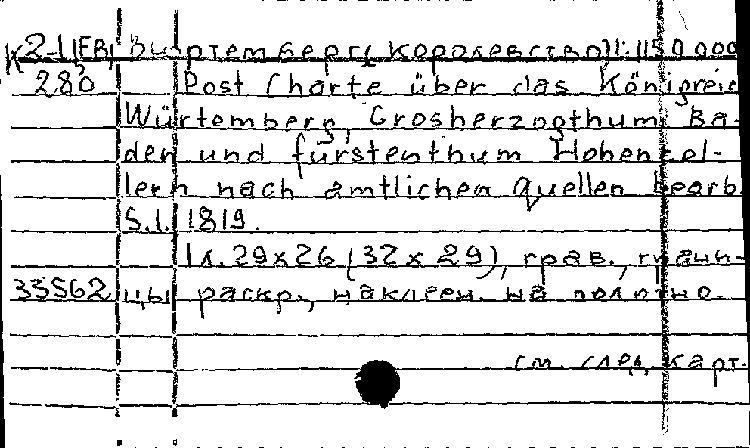 К2-ЦЕВ, Вюртемберг (королевство) 1:1150 000
280 Post Charte über das Königreic
Würtemberg, Grosherzogthum Ba-
den und fürstenthum Hohenzol-
lern nach amtlichen Quellen bearb
S.l. 1819.
1л. 29x26 (32x29), грав., грани-
33562 цы раскр., наклеен. на полотно.
см. след. карт.